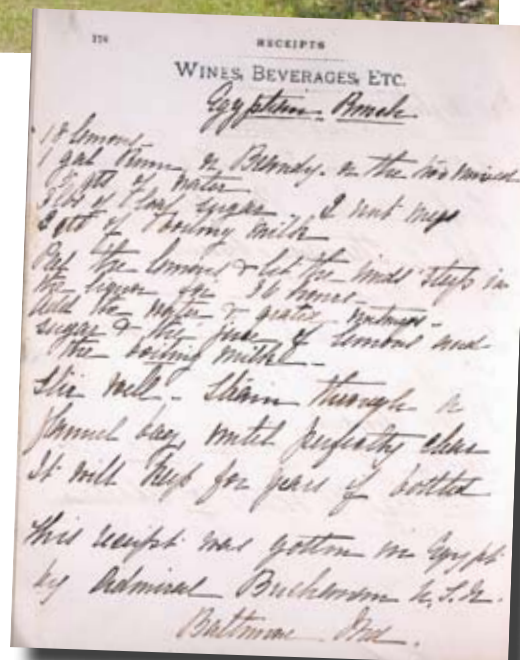 176
RECEIPTS
WINES, BEVERAGES, ETC.
Egyptian Punch
18 lemons
1 gal Rum or Brandy or the two mixed
5 qts of water
3 lbs of loaf sugar - 2 nutmegs
2 qts of boiling milk
Pare the lemons & let the rinds steep in
the liquor for 36 hours -
add the water & grated nutmegs -
sugar & the juice of lemons and
the boiling milk -
Stir well - Strain through a
flannel bag, until perfectly clear
It will keep for years if bottled
This receipt was gotten in Egypt
by Admiral Buchanan U.S.N.
Baltimore Md.